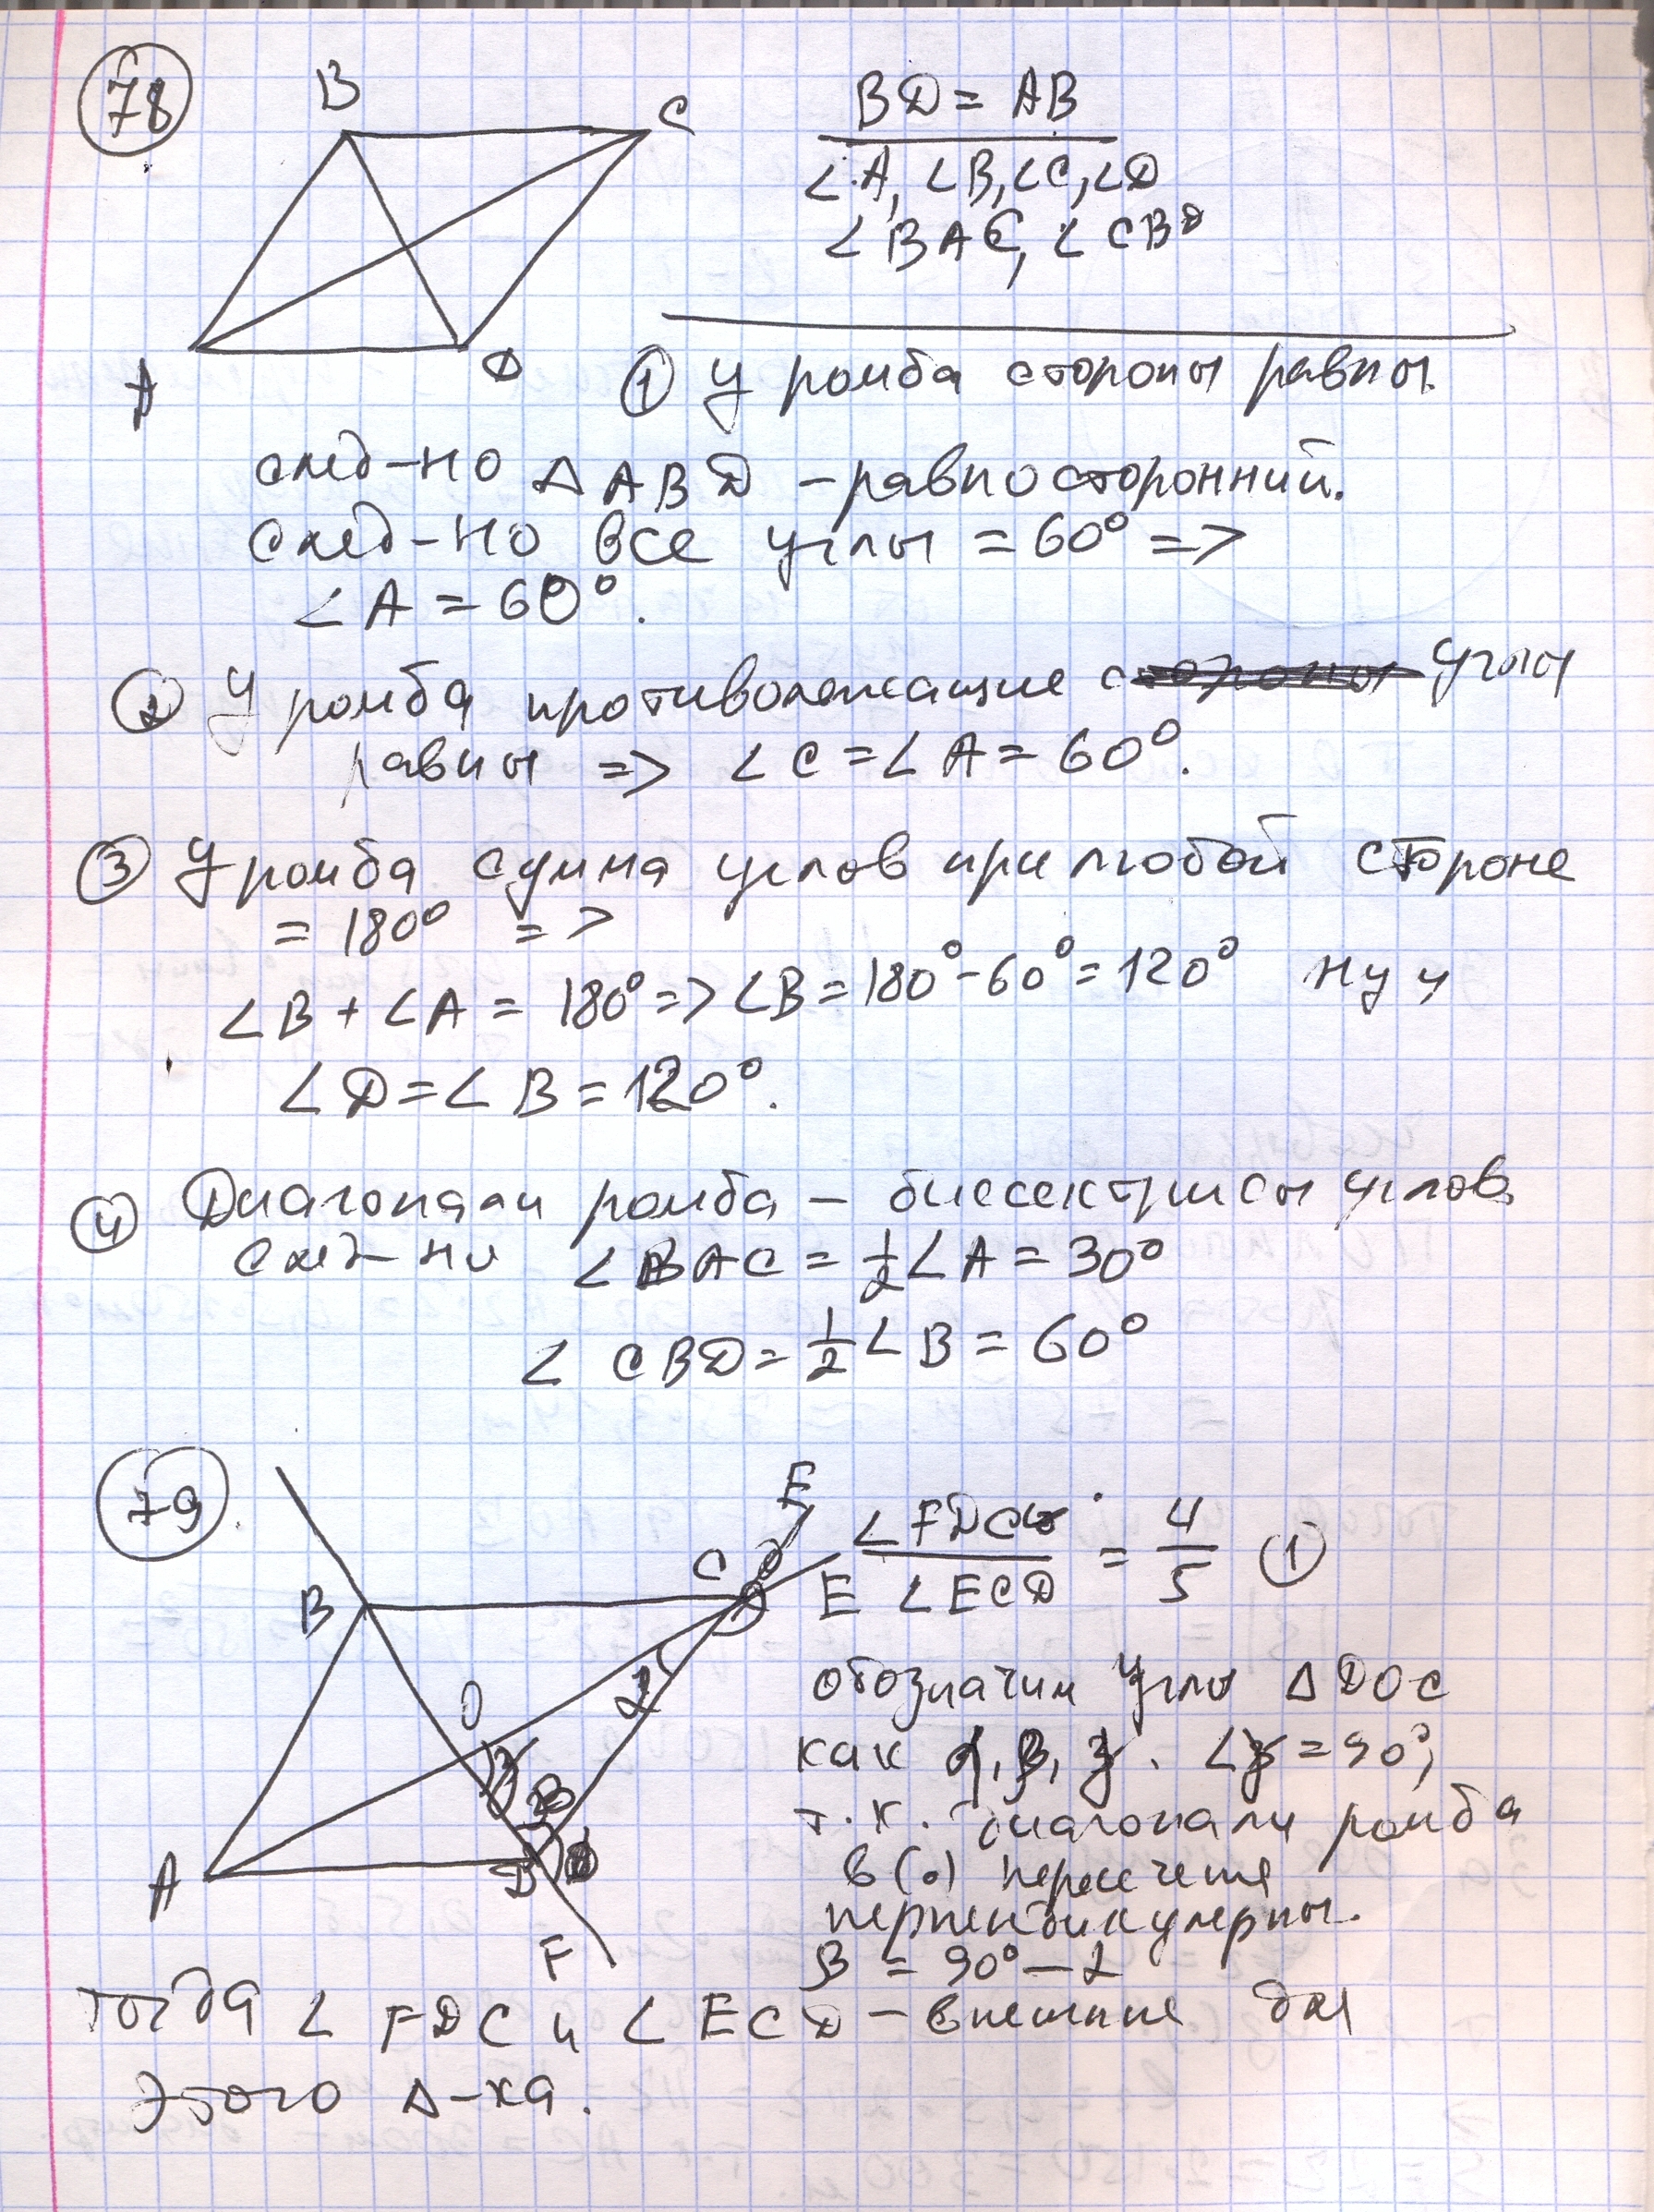 78
B
C
A
D
BD = AB
∠A, ∠B, ∠C, ∠D
∠BAC, ∠CBD
① У ромба стороны равны.
след-но △ABD - равносторонний.
След-но все углы = 60° =>
∠A = 60°.
② У ромба противолежащие углы
равны => ∠C = ∠A = 60°.
③ У ромба сумма углов при любой стороне
= 180° =>
∠B + ∠A = 180° => ∠B = 180° - 60° = 120° ну и
∠D = ∠B = 120°.
④ Диагонали ромба - биссектрисы углов
след-но ∠BAC = 1/2 ∠A = 30°
∠CBD = 1/2 ∠B = 60°
79
E
B
C
E
O
α
γ
β
A
D
F
∠FDC / ∠ECD = 4/5 ①
обозначим углы △DOC
как α, β, γ. ∠γ = 90°,
т.к. диагонали ромба
в (·) пересечения
перпендикулярны.
β = 90° - α
Тогда ∠FDC и ∠ECD - внешние для
этого △-ка.